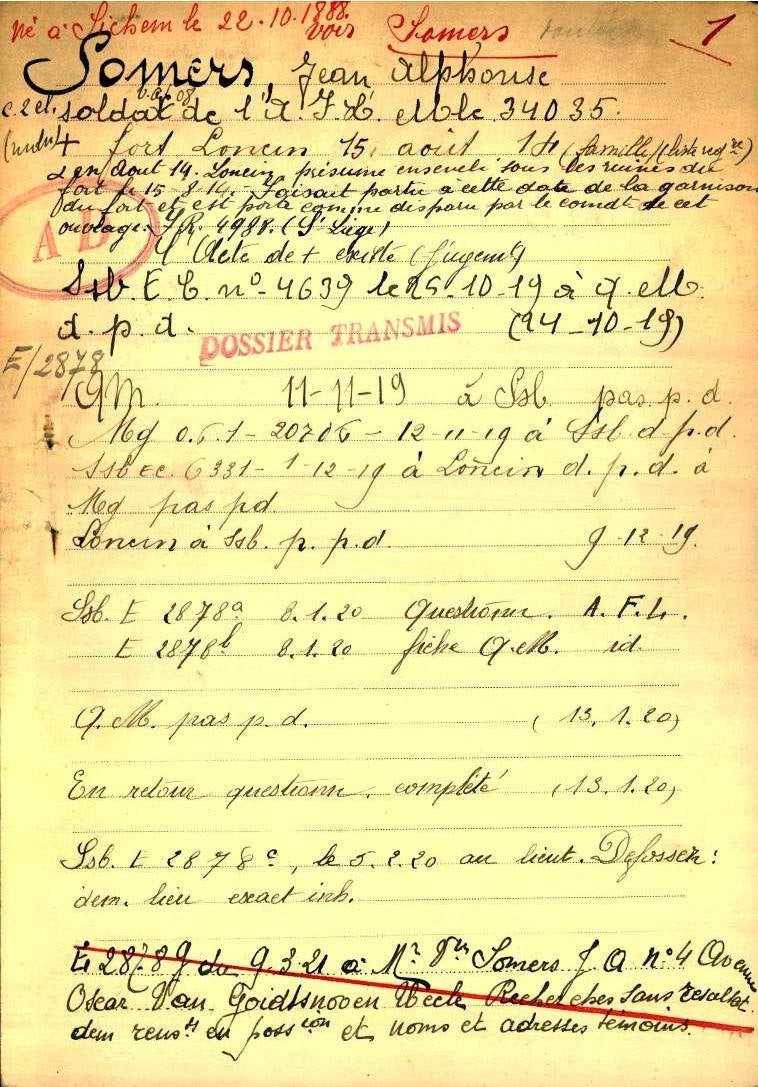 Né à Sichem le 22.10.1888.
voir Somers 1
Somers, Jean Alphonse
soldat de l'A. F. L. Mle 34035.
+ fort Loncin 15 août 14 (famille) (liste regre)
2 en Août 14. Loncin, présumé enseveli sous les ruines du
fort le 15-8-14. - Faisait partie à cette date de la garnison
du fort et est porté comme disparu par le comdt de cet
ouvrage. R. 4988. (St Liége)
Acte de + existe (Jugemt)
AD
Ssb. E C. no 4639 le 25-10-19 à Q.M.
d. p. d. (24-10-19)
DOSSIER TRANSMIS
E/2878
QM. 11-11-19 à Ssb pas p. d.
Mg 0.6.1 - 20706 - 12-11-19 à Ssb d.p.d.
Ssb ec 6331 - 1-12-19 à Loncin d. p. d. à
Mg pas pd
Loncin à Ssb. p. p. d. 9-12-19.
Ssb. E 2878a 8.1.20 Questionn. A. F. L.
E 2878b 8.1.20 fiche Q.M. id.
Q.M. pas p. d. (13.1.20)
En retour questionn. complété (13.1.20)
Ssb. E 2878c, le 5.2.20 au lieut. Defossez:
dem. lieu exact inh.
E 2878 g du 9.3.21 à Mr Somers J A n° 4 Avenue
Oscar Van Goidtsnoven Uccle Recherches sans resultat
dem rensts en possion et noms et adresses témoins.